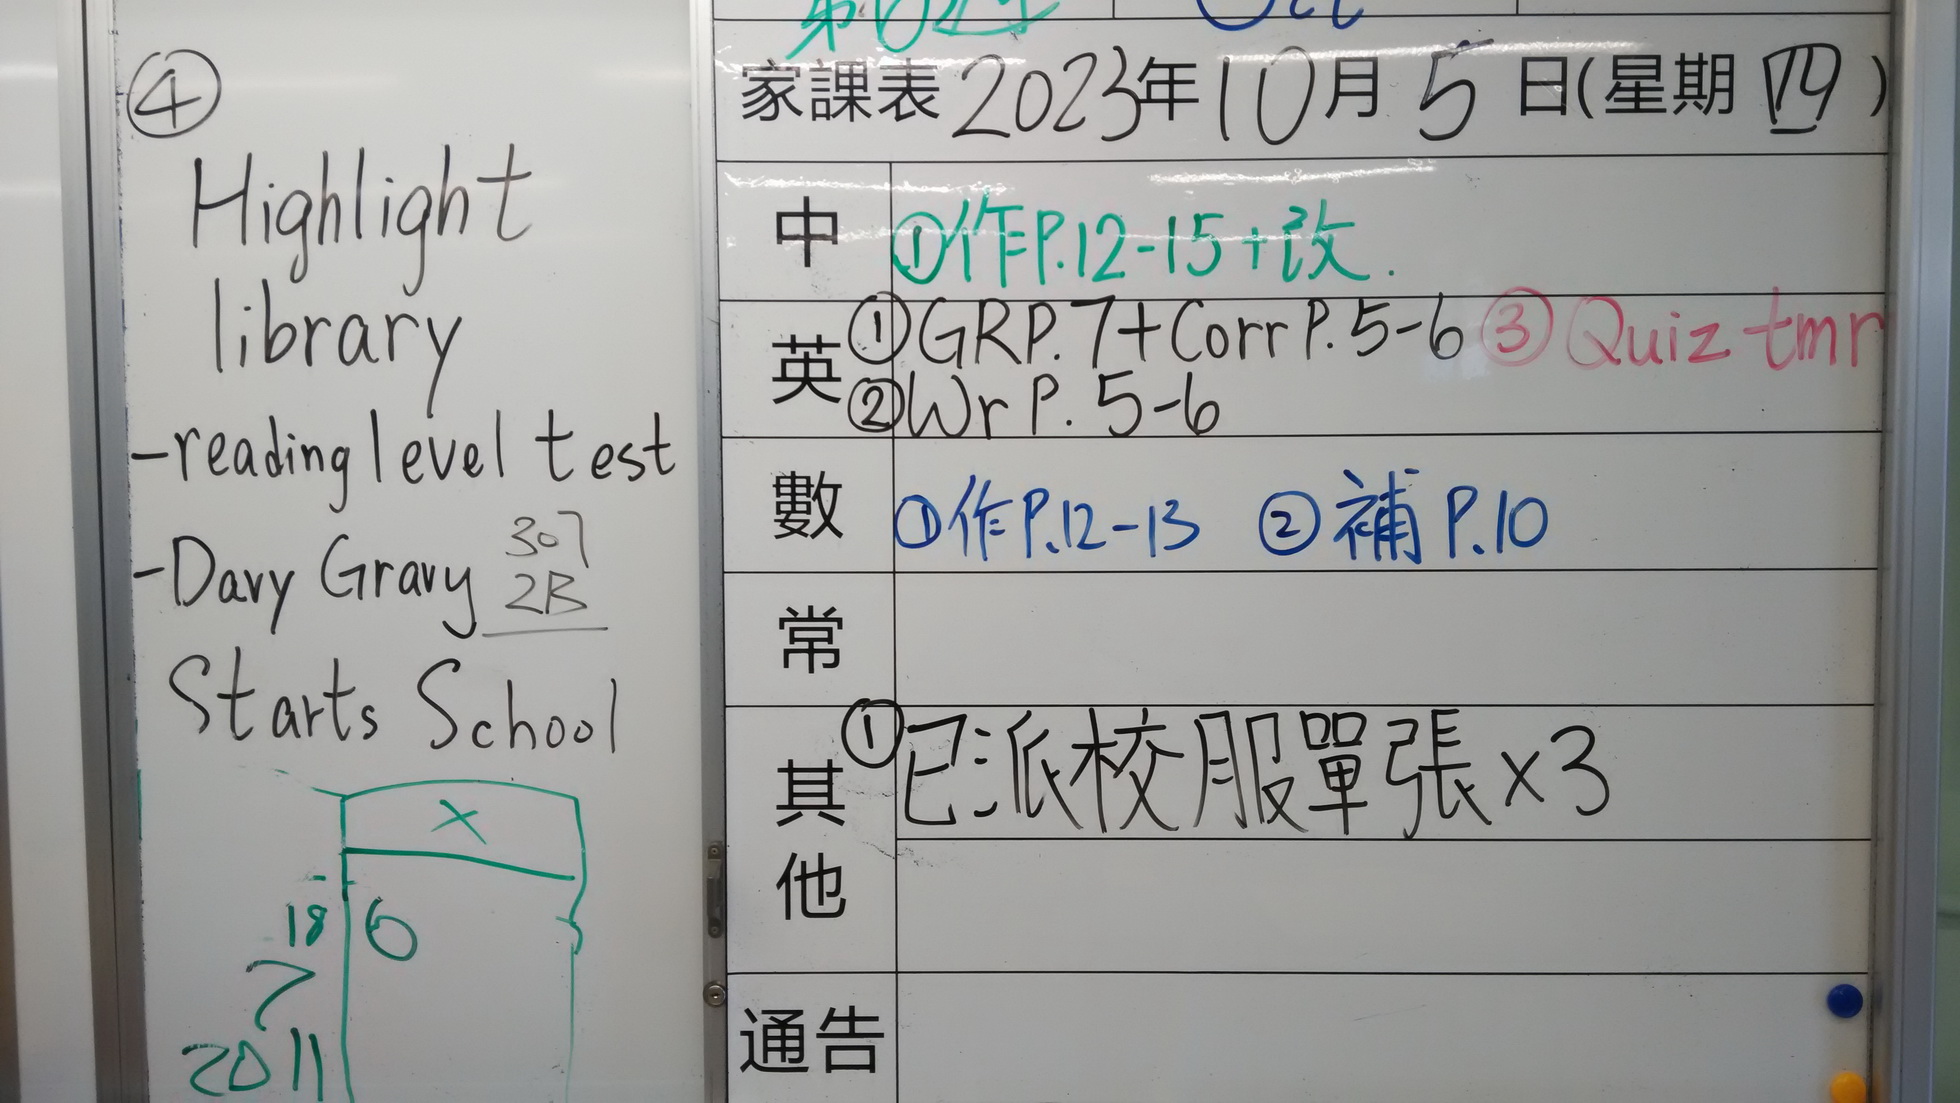 ④
Highlight
library
-reading level test
-Davy Gravy 307
2B
Starts School
x
18 6
7
2011
家課表 2023年10月5日(星期四)
中 ①作P.12-15+改.
英 ①GRP.7+Corr P.5-6 ③Quiz tmr
②Wr P. 5-6
數 ①作P.12-13 ②補P.10
常
其他 ①已派校服單張x3
通告